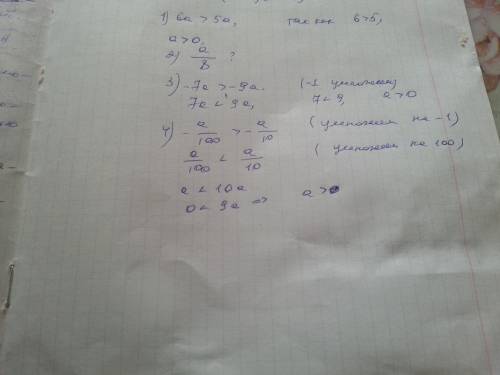 1) 6a > 5a, так как 6>5,
a>0.
2) a/8 ?
3) -7a > -9a. (-1 умножаем)
7a < 9a, 7<9, a>0
4) -a/100 > -a/10 (умножаем на -1)
a/100 < a/10 (умножаем на 100)
a < 10a
0 < 9a => a>0